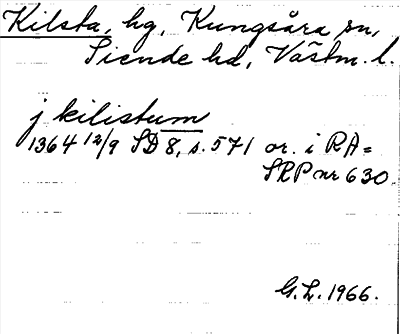 Kilsta, hg, Kungsåra sn,
Siende hd, Västm. l.
j kilistum
1364 12/9 SD 8, s. 571 or. i RA =
SRP nr 630.
G. L. 1966.